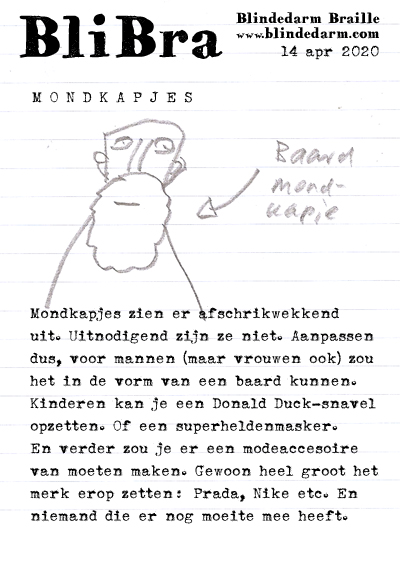 BliBra
Blindedarm Braille
www.blindedarm.com
14 apr 2020
MONDKAPJES
Baard
mond-
kapje
Mondkapjes zien er afschrikwekkend
uit. Uitnodigend zijn ze niet. Aanpassen
dus, voor mannen (maar vrouwen ook) zou
het in de vorm van een baard kunnen.
Kinderen kan je een Donald Duck-snavel
opzetten. Of een superheldenmasker.
En verder zou je er een modeaccesoire
van moeten maken. Gewoon heel groot het
merk erop zetten: Prada, Nike etc. En
niemand die er nog moeite mee heeft.